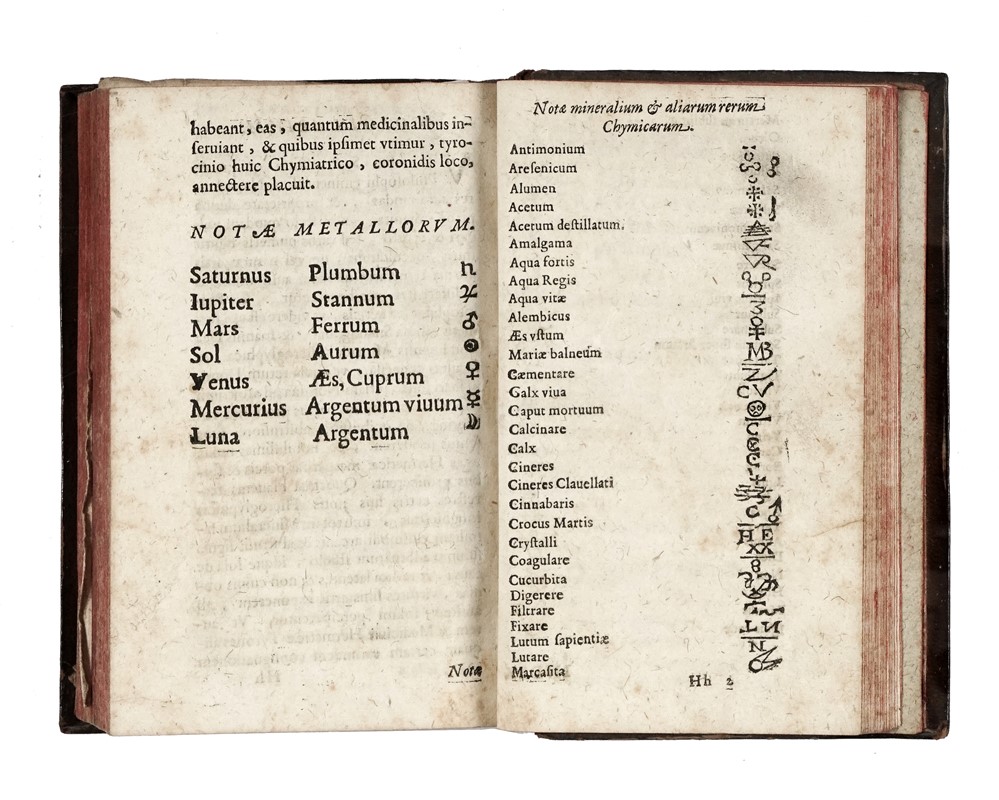 habeant, eas, quantum medicinalibus in-
ſeruiant, & quibus ipſimet vtimur, tyro-
cinio huic Chymiatrico, coronidis loco,
annectere placuit.
NOTÆ METALLORVM.
Saturnus Plumbum ♄
Iupiter Stannum ♃
Mars Ferrum ♂
Sol Aurum ☉
Venus Æs, Cuprum ♀
Mercurius Argentum viuum ☿
Luna Argentum ☽
Notæ
Notæ mineralium & aliarum rerum
Chymicarum.
Antimonium
Areſenicum
Alumen
Acetum
Acetum deſtillatum.
Amalgama
Aqua fortis
Aqua Regis
Aqua vitæ
Alembicus
Æs vſtum
Mariæ balneum
Cæmentare
Galx viua
Caput mortuum
Calcinare
Calx
Cineres
Cineres Clauellati
Cinnabaris
Crocus Martis
Cryſtalli
Coagulare
Cucurbita
Digerere
Filtrare
Fixare
Lutum ſapientiæ
Lutare
Marcaſita
Hh 2